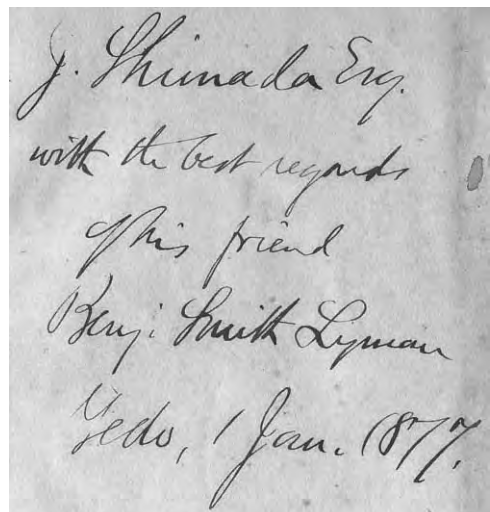 J. Shimada Esq.
with the best regards
of his friend
Benj. Smith Lyman
Yedo, 1 Jan. 1877.